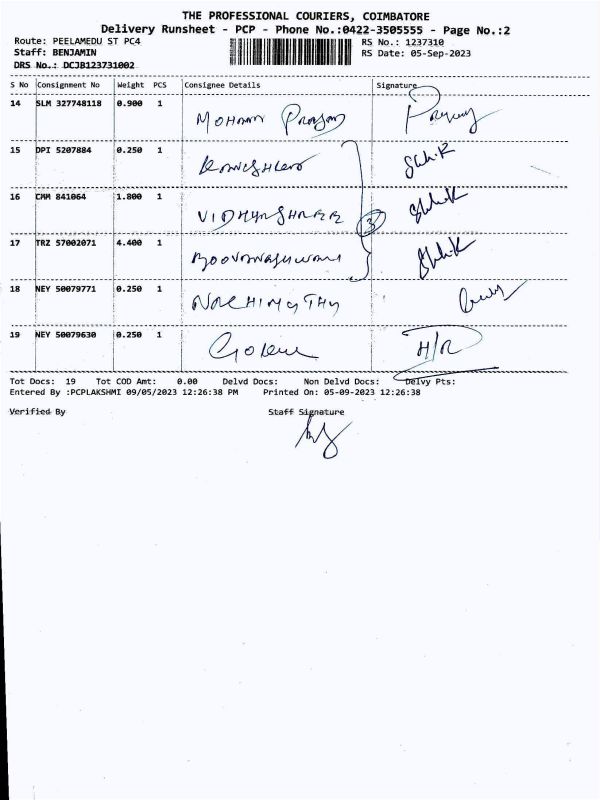 THE PROFESSIONAL COURIERS, COIMBATORE
Delivery Runsheet - PCP - Phone No.:0422-3505555 - Page No.:2
Route: PEELAMEDU ST PC4 RS No.: 1237310
Staff: BENJAMIN RS Date: 05-Sep-2023
DRS No.: DCJB123731002
S No Consignment No Weight PCS Consignee Details Signature
14 SLM 327748118 0.900 1 MOHAN PRASAD
15 DPI 5207884 0.250 1
16 CMM 841064 1.800 1 3
17 TRZ 57002071 4.400 1
18 NEY 50079771 0.250 1
19 NEY 50079630 0.250 1 H/R
Tot Docs: 19 Tot COD Amt: 0.00 Delvd Docs: Non Delvd Docs: Delvy Pts:
Entered By :PCPLAKSHMI 09/05/2023 12:26:38 PM Printed On: 05-09-2023 12:26:38
Verified By Staff Signature